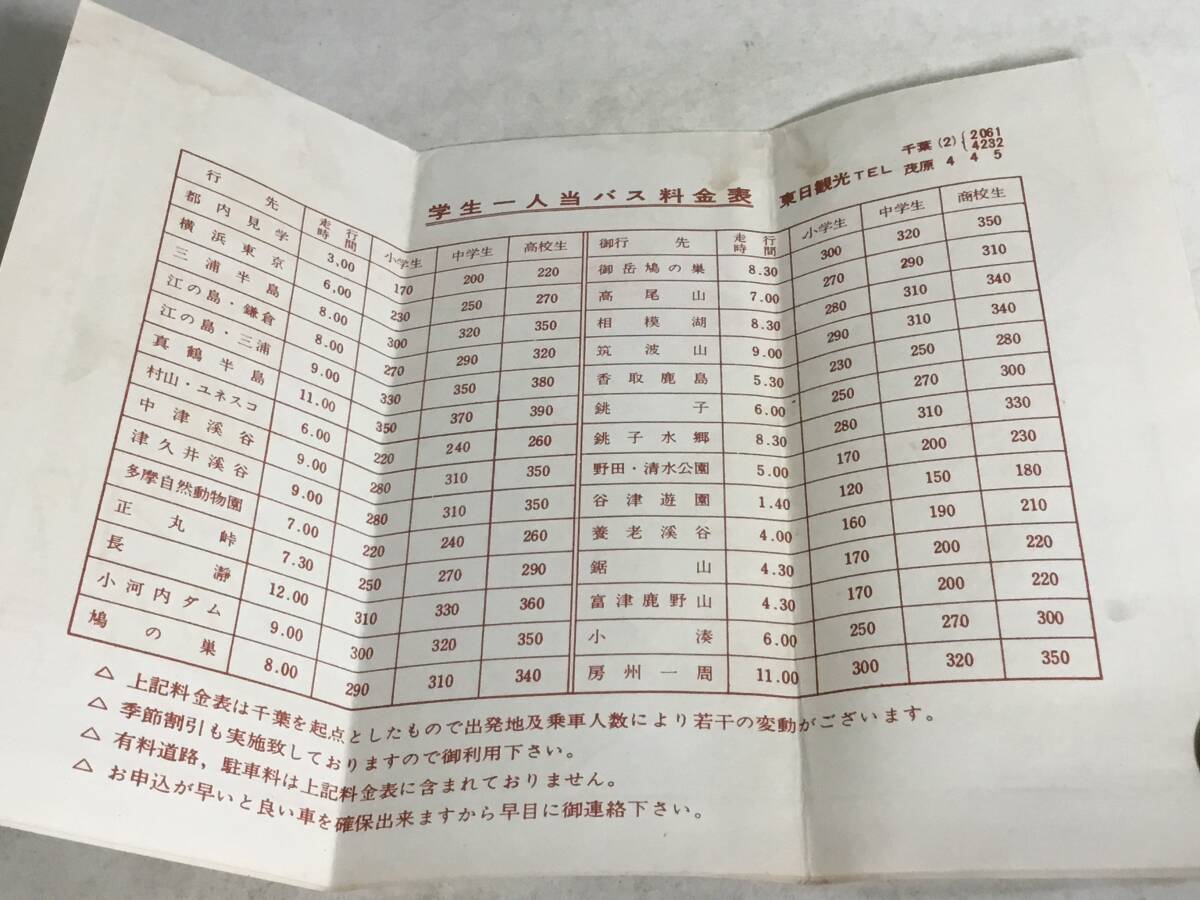 学生一人当バス料金表
東日観光TEL 千葉(2){2061 4232
茂原 4 4 5
行先 走行時間 小学生 中学生 高校生
都内見学 3.00 170 200 220
横浜東京 6.00 230 250 270
三浦半島 8.00 300 320 350
江の島・鎌倉 8.00 270 290 320
江の島・三浦 9.00 330 350 380
真鶴半島 11.00 350 370 390
村山・ユネスコ 6.00 220 240 260
中津溪谷 9.00 280 310 350
津久井溪谷 9.00 280 310 350
多摩自然動物園 7.00 220 240 260
正丸峠 7.30 250 270 290
長瀞 12.00 310 330 360
小河内ダム 9.00 300 320 350
鳩の巣 8.00 290 310 340
御行先 走行時間 小学生 中学生 商校生
御岳鳩の巣 8.30 300 320 350
高尾山 7.00 270 290 310
相模湖 8.30 280 310 340
筑波山 9.00 290 310 340
香取鹿島 5.30 230 250 280
銚子 6.00 250 270 300
銚子水郷 8.30 280 310 330
野田・清水公園 5.00 170 200 230
谷津遊園 1.40 120 150 180
養老溪谷 4.00 160 190 210
鋸山 4.30 170 200 220
富津鹿野山 4.30 170 200 220
小湊 6.00 250 270 300
房州一周 11.00 300 320 350
△ 上記料金表は千葉を起点としたもので出発地及乗車人数により若干の変動がございます。
△ 季節割引も実施致しておりますので御利用下さい。
△ 有料道路，駐車料は上記料金表に含まれておりません。
△ お申込が早いと良い車を確保出来ますから早目に御連絡下さい。